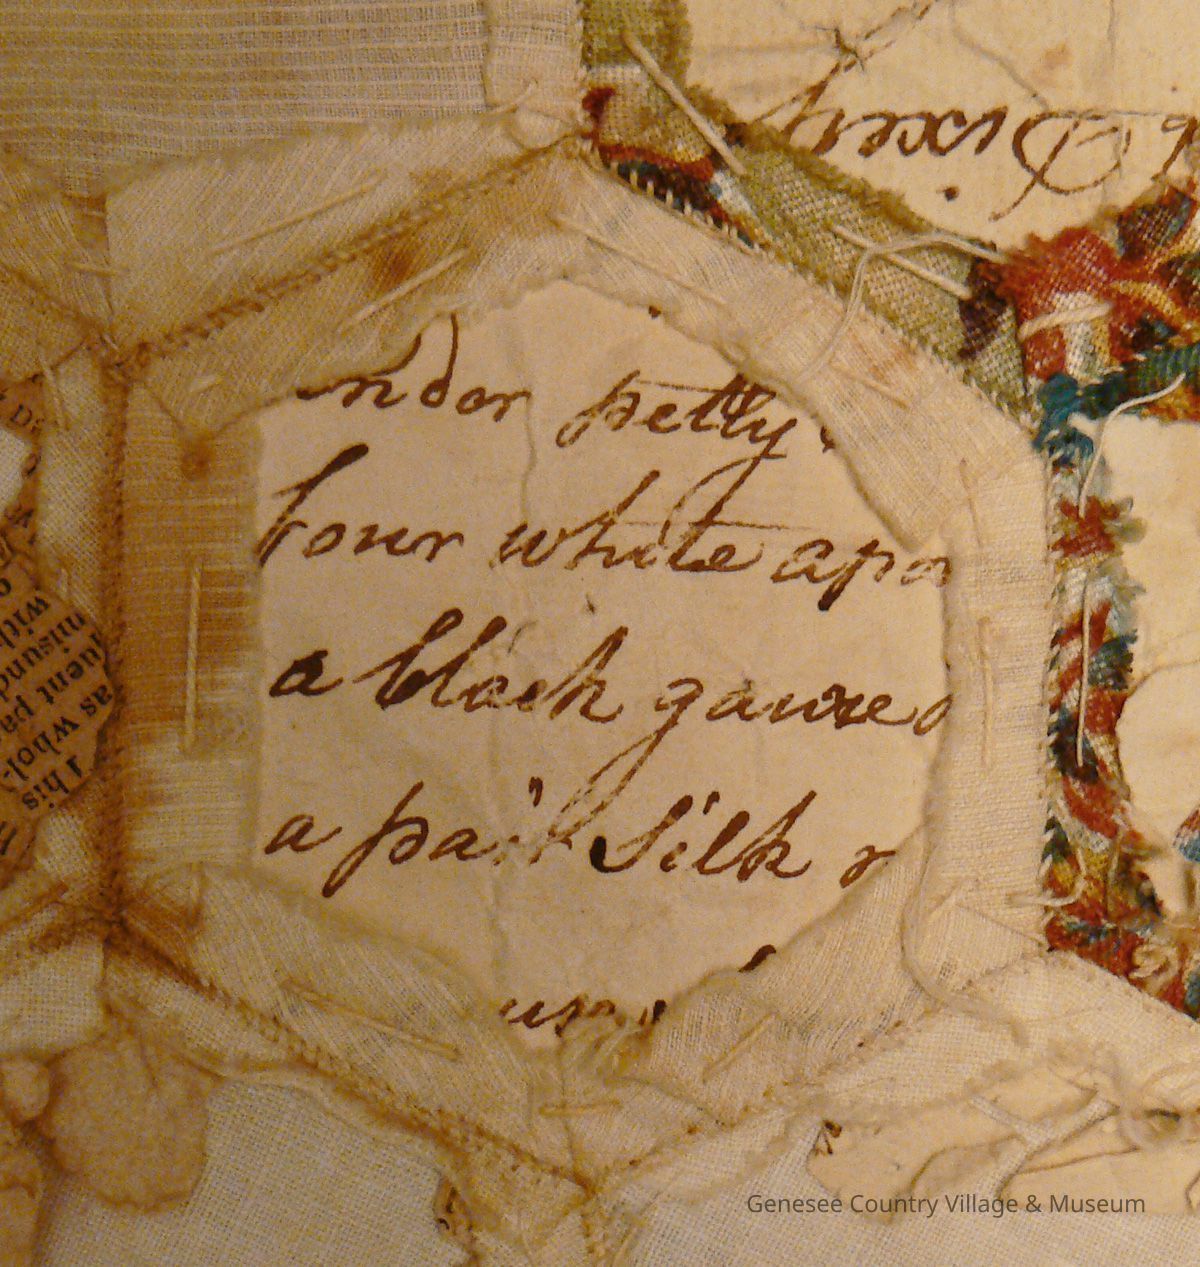 Dixery
under petty
four white apro
a black gauze
a pair Silk
This
as whol-
uent pa
misund
with
Genesee Country Village & Museum